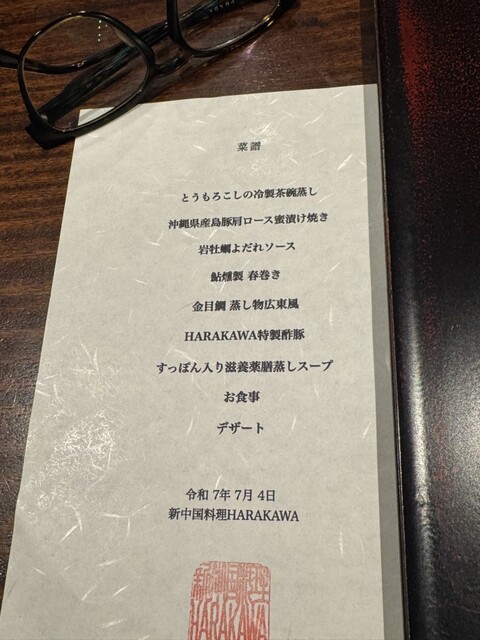 菜譜
とうもろこしの冷製茶碗蒸し
沖縄県産島豚肩ロース蜜漬け焼き
岩牡蠣よだれソース
鮎燻製 春巻き
金目鯛 蒸し物広東風
HARAKAWA特製酢豚
すっぽん入り滋養薬膳蒸しスープ
お食事
デザート
令和 7年 7月 4日
新中国料理HARAKAWA
HARAKAWA